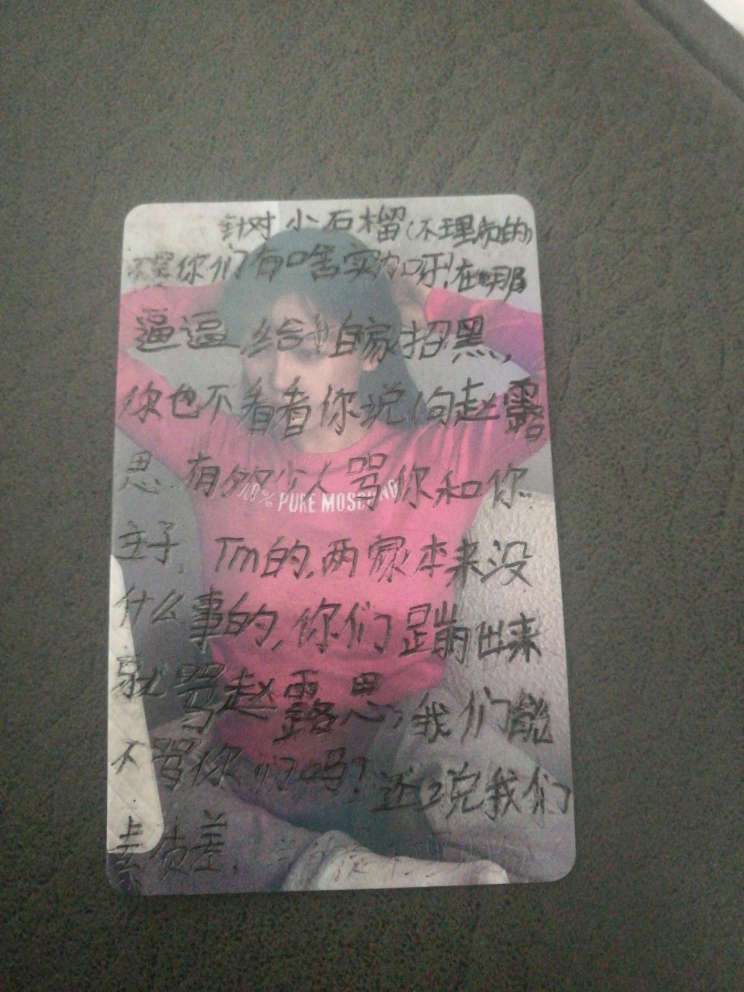 针对小石榴(不理智的)
你们有啥实力呀!在哪
逼逼,给自家招黑,
你也不看看你说句赵露
思.有多少人骂你和你
主子,Tm的,两家本来没
什么事的,你们蹦出来
就骂赵露思,我们能
不骂你们吗?还说我们
素质差.
% PURE MOSCHINO